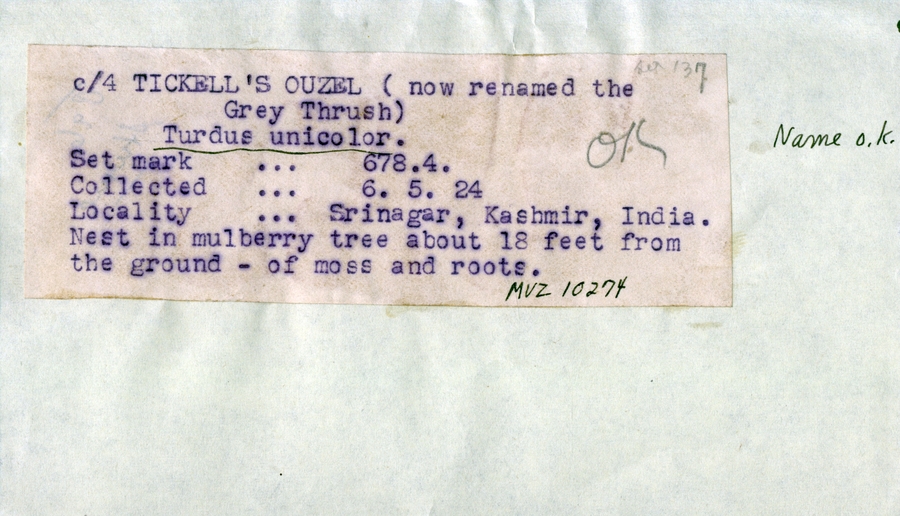 137
c/4 TICKELL'S OUZEL ( now renamed the
Grey Thrush)
Turdus unicolor.
OK
Name o.k.
Set mark ... 678.4.
Collected ... 6. 5. 24
Locality ... Srinagar, Kashmir, India.
Nest in mulberry tree about 18 feet from
the ground - of moss and roots.
MVZ 10274